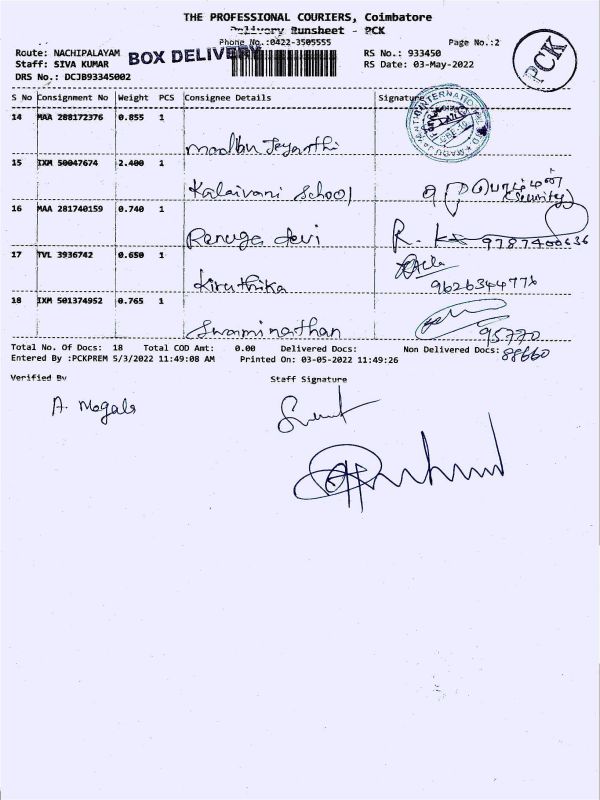 THE PROFESSIONAL COURIERS, Coimbatore
Delivery Runsheet - PCK
Phone No.:0422-3505555 Page No.:2
PCK
Route: NACHIPALAYAM RS No.: 933450
BOX DELIVERY
Staff: SIVA KUMAR RS Date: 03-May-2022
DRS No.: DCJB93345002
S No Consignment No Weight PCS Consignee Details Signature
14 MAA 288172376 0.855 1
INTERNATIONAL
Madhu Jeyanthi
15 IXM 50047674 2.400 1
Kalaivani School
(Security)
16 MAA 281740159 0.740 1
Renuga devi R. K 9787400636
17 TVL 3936742 0.650 1
Kiruthika 9626344776
18 IXM 501374952 0.765 1
Swaminathan 95770
88660
Total No. Of Docs: 18 Total COD Amt: 0.00 Delivered Docs: Non Delivered Docs:
Entered By :PCKPREM 5/3/2022 11:49:08 AM Printed On: 03-05-2022 11:49:26
Verified By Staff Signature
A. Mogals